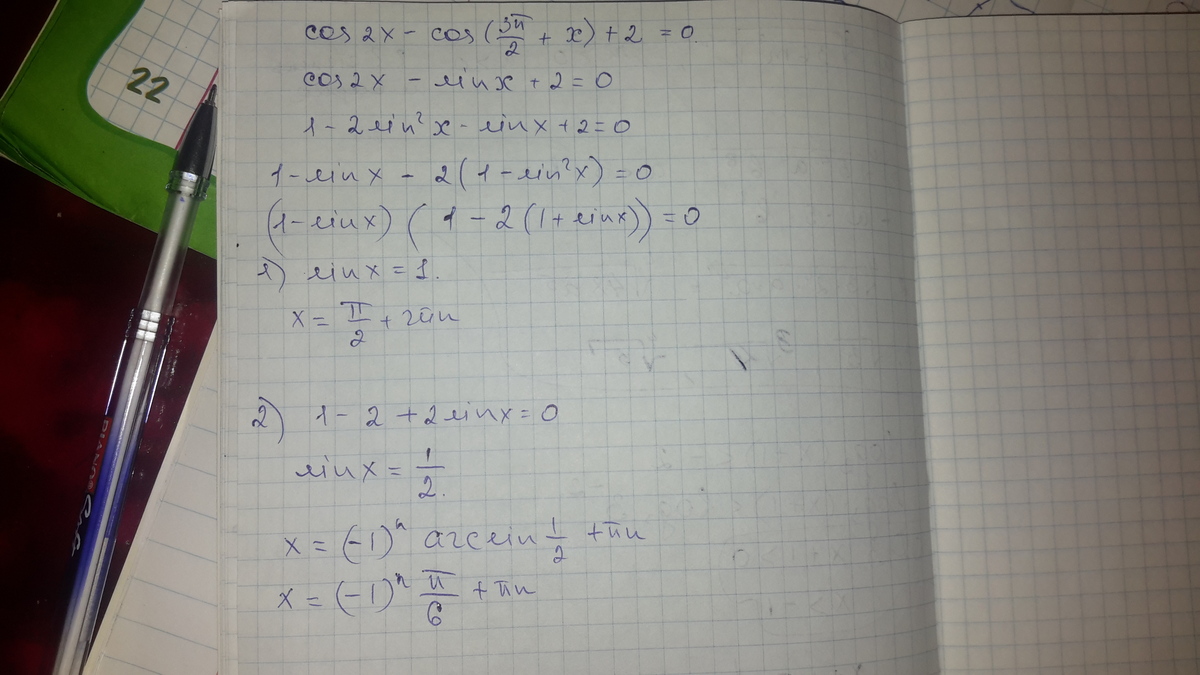 22
cos 2x - cos(3π/2 + x) + 2 = 0
cos 2x - sin x + 2 = 0
1 - 2 sin² x - sin x + 2 = 0
1 - sin x - 2(1 - sin² x) = 0
(1 - sin x)(1 - 2(1 + sin x)) = 0
1) sin x = 1.
x = π/2 + 2πn
2) 1 - 2 + 2 sin x = 0
sin x = 1/2.
x = (-1)ⁿ arcsin 1/2 + πn
x = (-1)ⁿ π/6 + πn